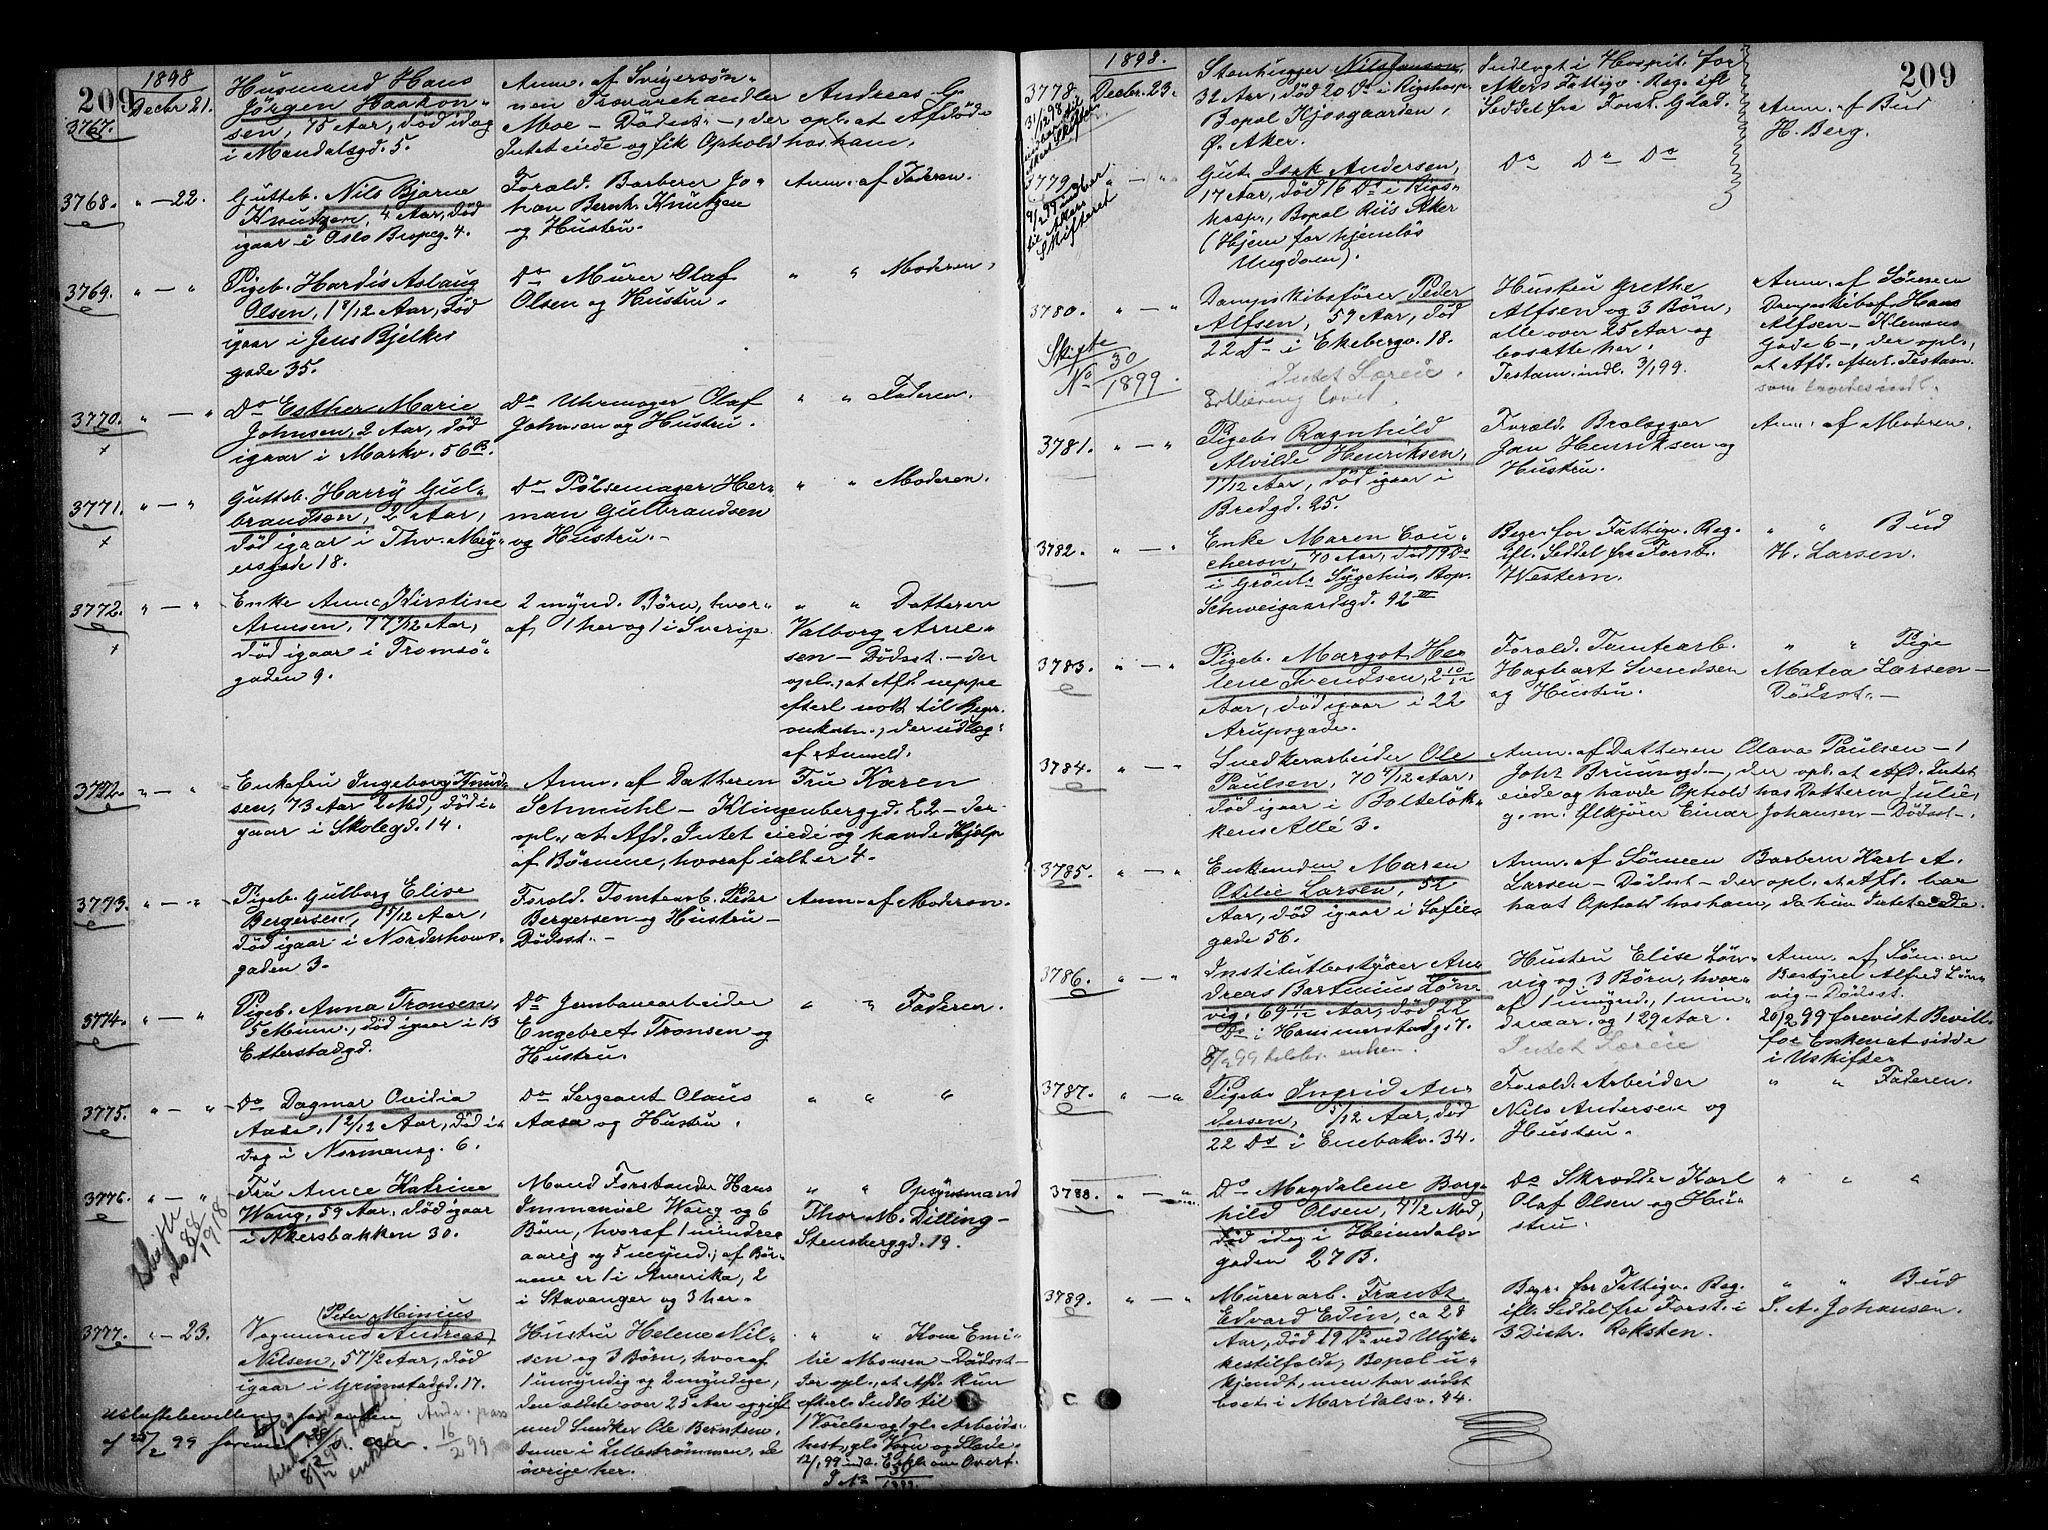 209
1898
Decbr. 21.
3767.
Husmand Hans
Jörgen Haakon-
sen, 75 Aar, död idag
i Mandalsgd. 5.
Anm. af Svigersön-
nen Isvarehandler Andreas G.
Moe – Dödsst. –, der opl. at Afdöde
Intet eiede og fik Ophold hos ham.
3768. " — 22.
Gutteb. Nils Bjarne
Knudtzen, 4 Aar, död
igaar i Oslo Bropeg. 4.
Foræld. Barberer Jo-
han Bernh. Knutzen
og Hustru.
Anm. af Faderen.
3769. " — "
Pigeb. Hardis Aslaug
Olsen, 1 8/12 Aar, död
igaar i Jens Bjelkes
gade 35.
Do Murer Olaf
Olsen og Hustru.
" " Moderen.
3770. " — "
Do Esther Marie
Johnsen, 2 Aar, död
igaar i Markv. 56 B.
Do Uhrmager Olaf
Johnsen og Hustru.
" " Faderen.
3771. " — "
Gutteb. Harry Gul-
brandsen, 2 Aar,
död igaar i Thv. Mey-
ersgade 18.
Do Pölsemager Her-
man Gulbrandsen
og Hustru. –
" " Moderen.
3772. " — "
Enke Anne Kirstine
Arnesen, 77 1/12 Aar,
död igaar i Tromsö-
gaden 9.
2 mynd. Börn, hvor-
af 1 her og 1 i Sverige.
" " Datteren
Valborg Arne-
sen – Dödsst. – der
opl., at Afd. neppe
efterl. nok til Begr.
omkostn., der udlog.
af Anmeld.
3772. " — "
Enkefru Ingeborg Knud-
sen, 73 Aar 2 Md, död i-
gaar i Skolegd. 14.
Anm. af Datteren Fru Karen
Schmühl – Klingenberggd. 22 – der
opl., at Afd. Intet eiede og havde Hjelp
af Börnene, hvoraf ialt er 4.
3773. " — "
Pigeb. Gulborg Elise
Bergersen, 1 5/12 Aar,
död igaar i Norderhovs-
gaden 3.
Foræld. Tomtearb. Peder
Bergersen og Hustru –
Dödsst. –
Anm. af Moderen.
3774. " — "
Pigeb. Anna Tronsen,
5 Minu., död igaar i 13
Etterstadgd.
Do Jernbanearbeider
Engebret Tronsen og
Hustru.
" " Faderen.
3775. " — "
Do Dagmar Ovidia
Aase, 1 2/12 Aar, död i-
dag i Normansg. 6.
Do Sergeant Olaus
Aasa og Hustru.
" " "
3776. " — "
Fru Anne Katrine
Wang, 59 Aar, död igaar
i Akersbakken 30.
Mand Forstander Hans
Immanuel Wang og 6
Börn, hvoraf 1 mindre
aarig og 5 mynd.; af Bör-
nene er 1 i Amerika, 2
i Stavanger og 3 her –
" " Opsynsmand
Thor M. Dilling –
Stensberggd. 19.
Skifte
No 88
1918
3777. " — 23.
(Peter Minius
Vognmand Andreas)
Nilsen, 57 1/2 Aar, död
igaar i Grimstadgd. 17.
Uskiftebevilling for enken
af 25/2 99 forevist
16
2 99
Hustru Helene Nil-
sen og 3 Börn, hvoraf
1 umyndig og 2 myndige,
den aldste over 25 Aar og gift
med Snedker Ole Berntsen,
hjeme i Lillestrømmen, de
övrige her.
" " Kone Emi-
lie Monsen – Dödsst –
der opl., at Afd. kun
efterl. Indbo til
1 Værelse og 1 gl. Arbeids-
hest, gl. Vogn og Slæde.
209
1898.
Decbr. 23.
3778.
31/12 98
Skiftet
Stenhugger Nils Jonsen,
32 Aar, död 20 Ds i Rigshosp.
Bopæl Kjosgaarden,
Ø. Aker.
Indlagt i Hospit. for
Akers Fattigv. Reg. ifl
Seddel fra Forst. Glad.
Anm. af Bud
H. Berg.
3779 " — "
9/2 99
til Akers
Skifteret
Gut Isak Andersen,
17 Aar, död 16 Ds i Rigs-
hosp., Bopæl Riis Aker
(Hjem for hjemlös
Ungdom).
Do Do Do
3780. " — "
Skifte
No 30
1899
Dampskibsförer Peder
Alfsen, 59 Aar, död
22 Ds i Ekebergv. 18.
Intet Særeie.
Erklæring lovet.
Hustru Grethe
Alfsen og 3 Börn,
alle over 25 Aar og
bosatte her.
Testam. indl. 3/1 99.
Anm. af Sönnen
Dampskibsf. Hans
Alfsen – Klemens
gade 6 –, der opl.,
at Afd. efterl. Testam.
som lovedes indl.
3781. " — "
Pigeb. Ragnhild
Alvilde Henriksen,
1 1/12 Aar, död igaar i
Bredgd. 25.
Foræld. Brolægger
Jan Henriksen og
Hustru.
Anm. af Moderen.
3782. " — "
Enke Maren Cou-
cheron, 70 Aar, död 19 Ds
i Grönl. Sygehus, Bop.
Schweigaardsgd. 92 III
Begr. for Fattigv. Reg.
ifl. Seddel fra Forst.
Western.
" " Bud
H. Larsen.
3783. " — "
Pigeb. Margot He-
lene Svendsen, 2 10/12
Aar, död igaar i 22
Arupsgade.
Foræld. Tomtearb.
Hagbart Svendsen
og Hustru.
" " Pige
Matea Larsen –
Dödsst. –
3784. " — "
Snedkerarbeider Ole
Paulsen, 70 4/12 Aar,
död igaar i Bolteløk-
kens Allé 3.
Anm. af Datteren Olava Paulsen – 1
Joh. Bruunsgd. –, der opl. at Afd. Intet
eiede og havde Ophold hos Datteren Julie,
g. m. Ølkjörer Einar Johansen – Dödsst –.
3785. " — "
Enkemden Maren
Otilie Larsen, 52
Aar, död igaar i Sofie-
gade 56.
Anm. af Sönnen Barberer Karl A.
Larsen – Dödsst – der opl. at Afd. har
havt Ophold hos ham, da hun Intet eiede.
3786. " — "
Institutbestyrer An-
dreas Bartinius Lön-
vig, 69 11/12 Aar, död 22
Ds i Hammerstadg. 7.
Hustru Elise Lön-
vig og 3 Börn, hvor-
af 1 umynd., 1 min-
dreaar. og 1 29 Aar.
Intet Særeie
Anm. af Sönnen
Bestyrer Alfred Lön-
vig – Dödsst.
20/2 99 forevist Bevill.
for Enken at sidde
i Uskifte
3787. " — "
Pigeb. Ingrid An-
dersen, 5/12 Aar, död
22 Ds i Enebakv. 34.
Foræld. Arbeider
Nils Andersen og
Hustru.
" " Faderen.
3788. " — "
Do Magdalene Borg-
hild Olsen, 4 1/2 Md,
död idag i Heimdals-
gaden 27 B.
Do Skrædder Karl
Olaf Olsen og Hu-
stru.
" " "
3789. " — "
Murerarb. Frantz
Edvard Edin, ca 28
Aar, död 19 Ds ved Ulyk-
kestilfælde, Bopæl u-
kjendt, men har sidst
boet i Maridalsv. 44.
Begr. for Fattigv. Reg.
ifl. Seddel fra Forst. i
3 Distr. Reksten.
" " Bud
S. A. Johansen.